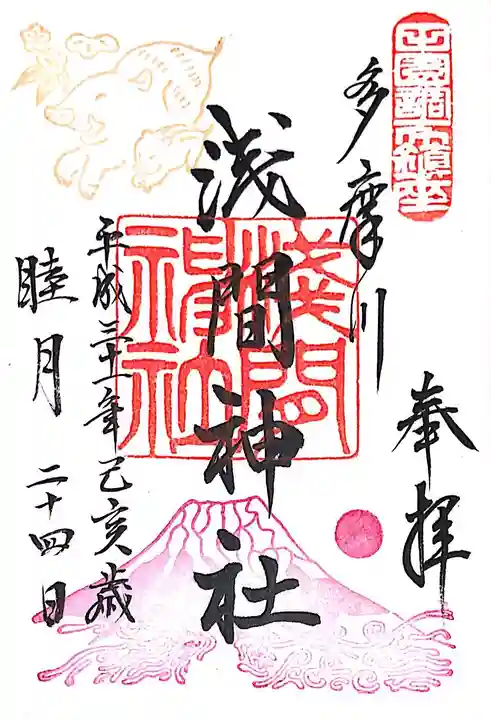 奉拝
多摩川
浅間神社
浅間神社
平成三十一年己亥歳
睦月 二十四日